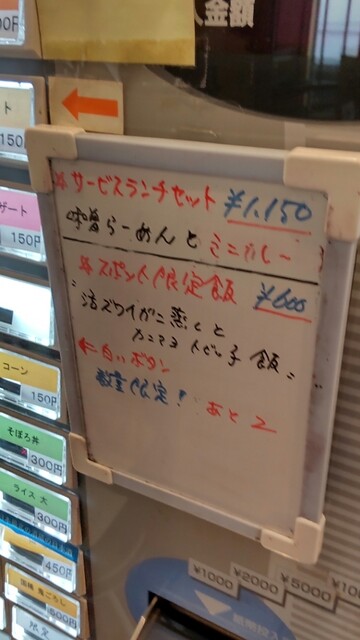 金額
150
ザート
150円
※ サービスランチセット ¥1.150
味噌らーめんと ミニカレー
※ スポット限定飯 ¥600
"活ズワイガニ蒸しと
カニマヨ トビッ子 飯"
←白いボタン
数量限定! あと2
コーン
150円
そぼろ丼
300円
ライス 大
300円
450円
500円
限定
¥1000 ¥2000 ¥5000